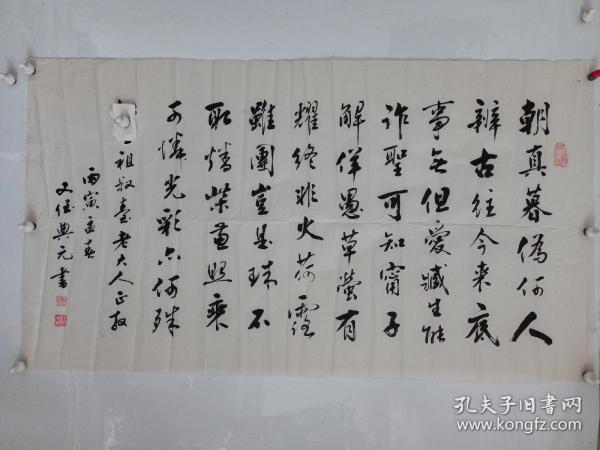 朝真暮偽何人
辨古往今来底
事无但愛臧生能
诈聖可知甯子
解佯愚草螢有
耀終非火荷露
雖團豈是珠不
取燔柴兼照乘
可憐光彩亦何殊
祖叔臺老大人正教
丙寅孟春
典元書
孔夫子旧书网
www.kongfz.com